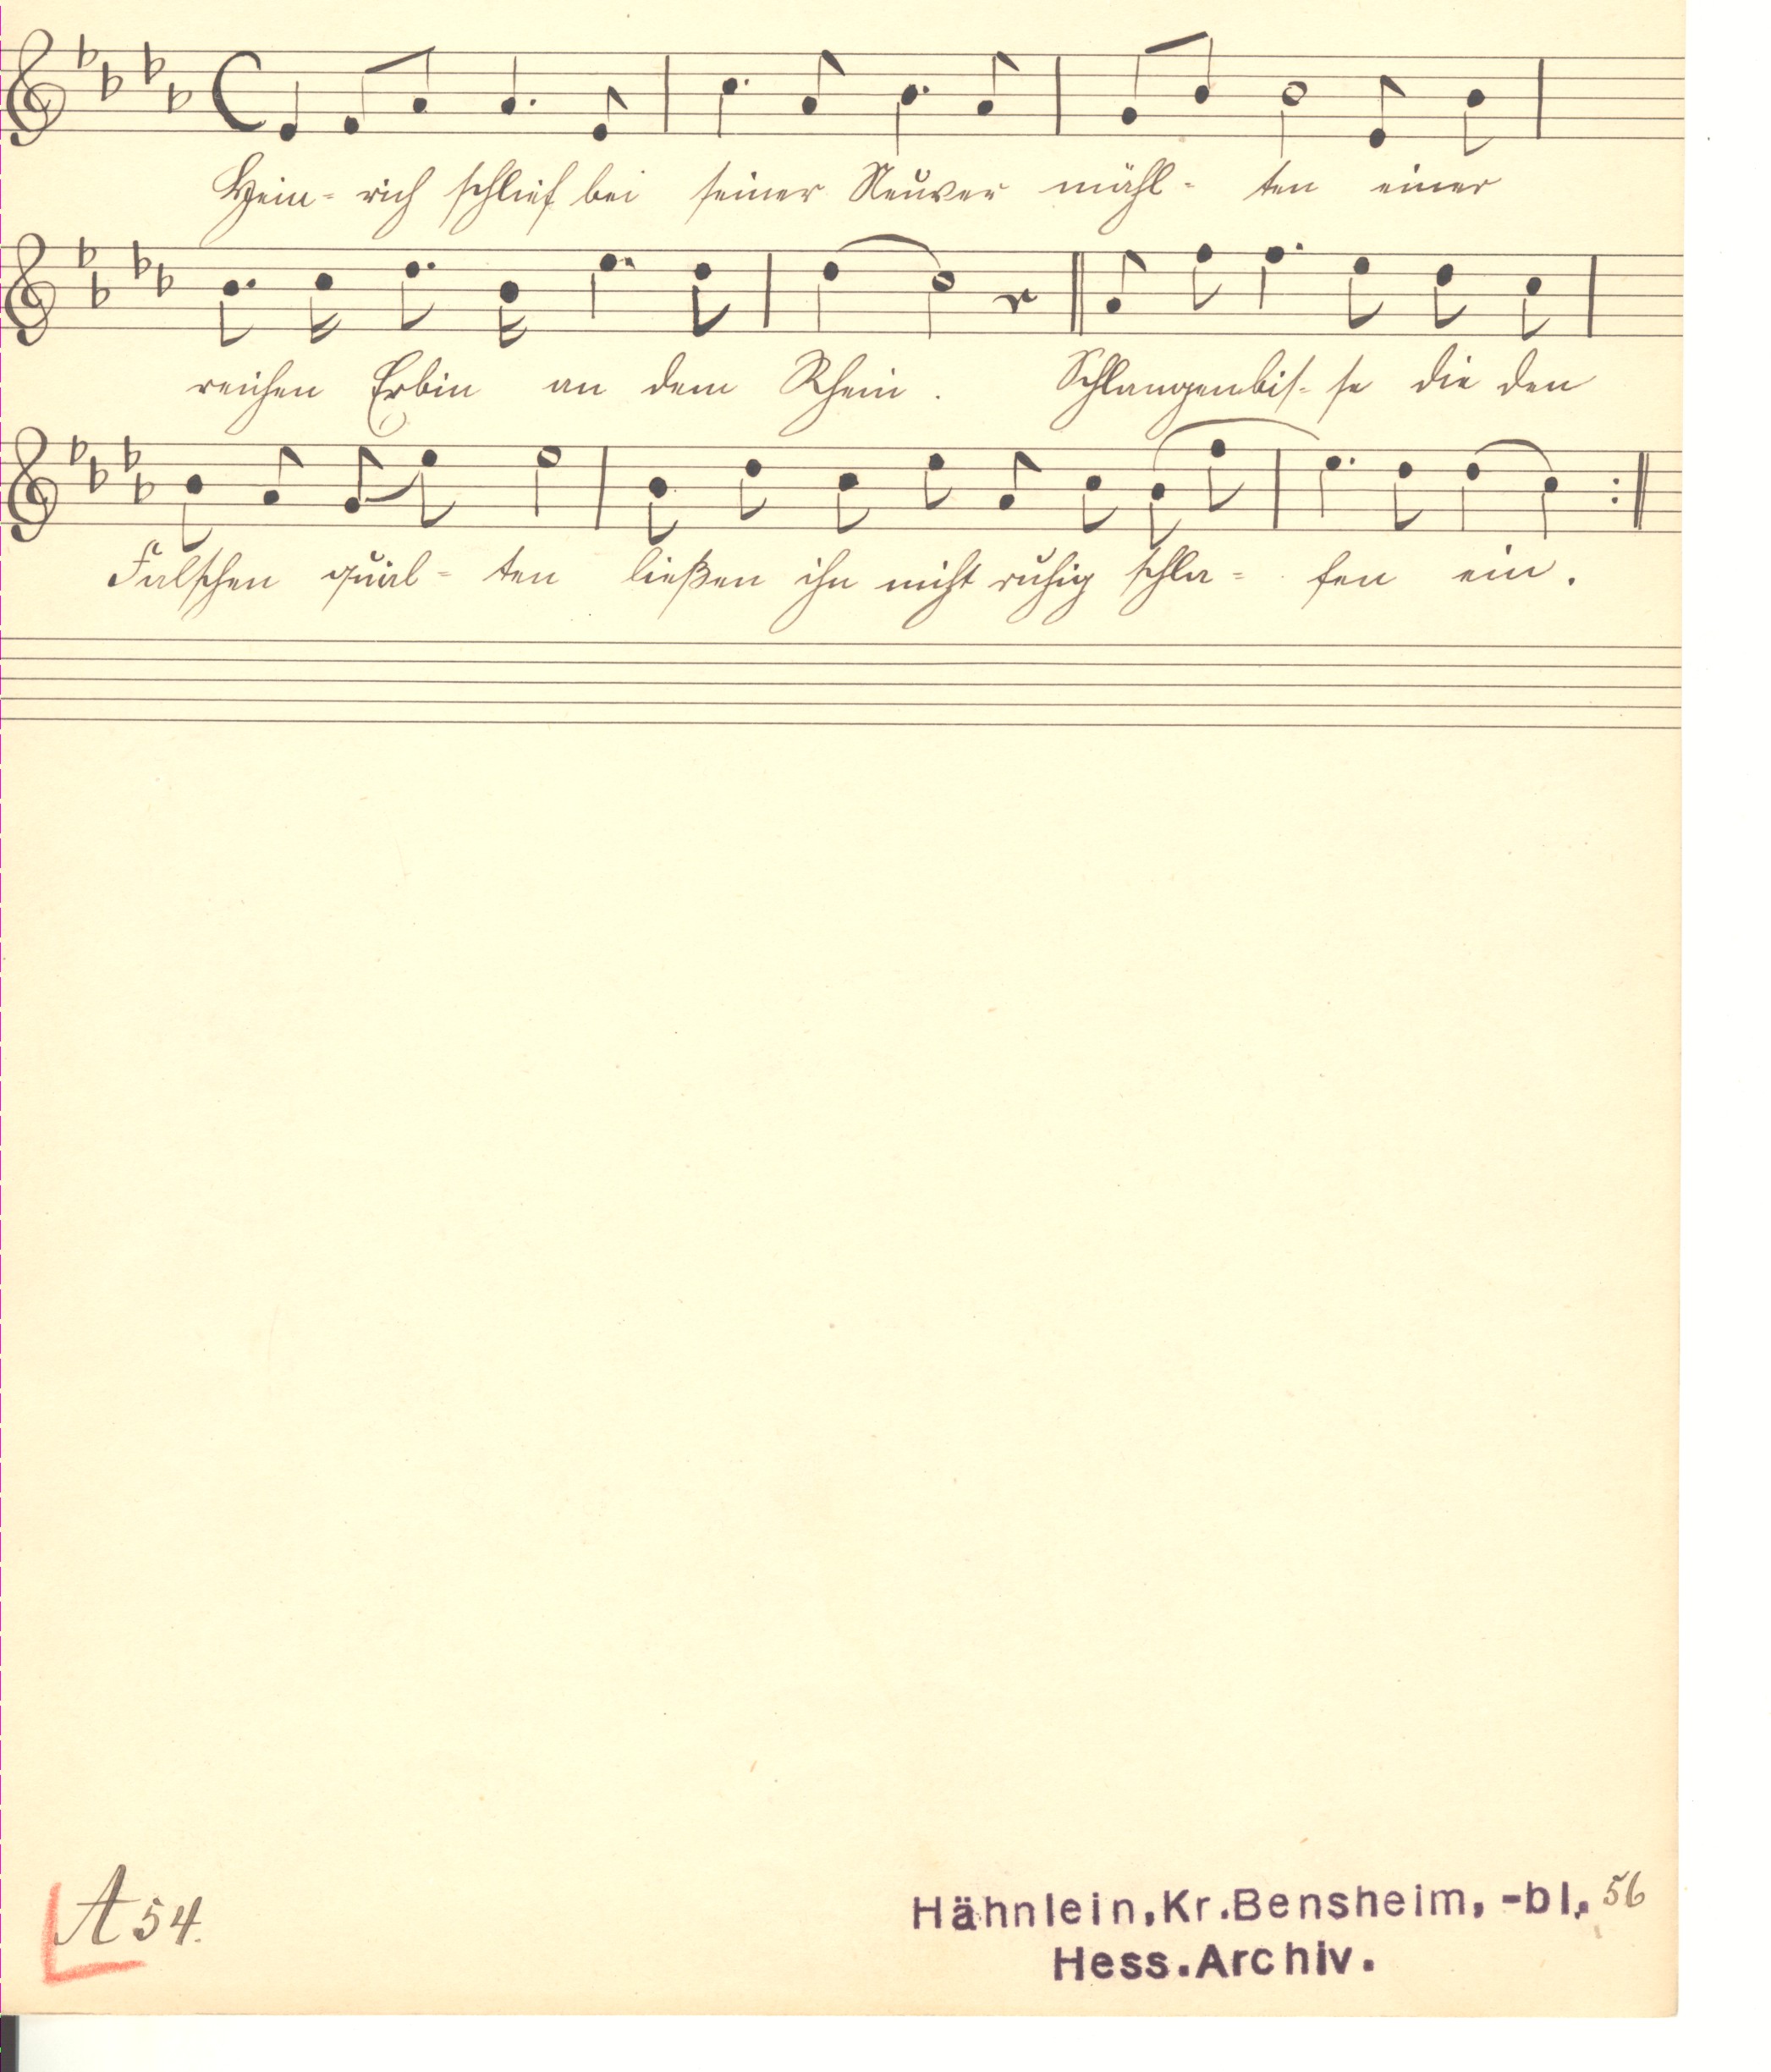 Hein- rich schlief bei seiner Neuver mähl- ten einer
reichen Erbin an dem Rhein. Schlangenbis- se die den
Falschen quäl- ten ließen ihn nicht ruhig schla- fen ein.
A 54.
Hähnlein, Kr. Bensheim, -bl. 56
Hess. Archiv.